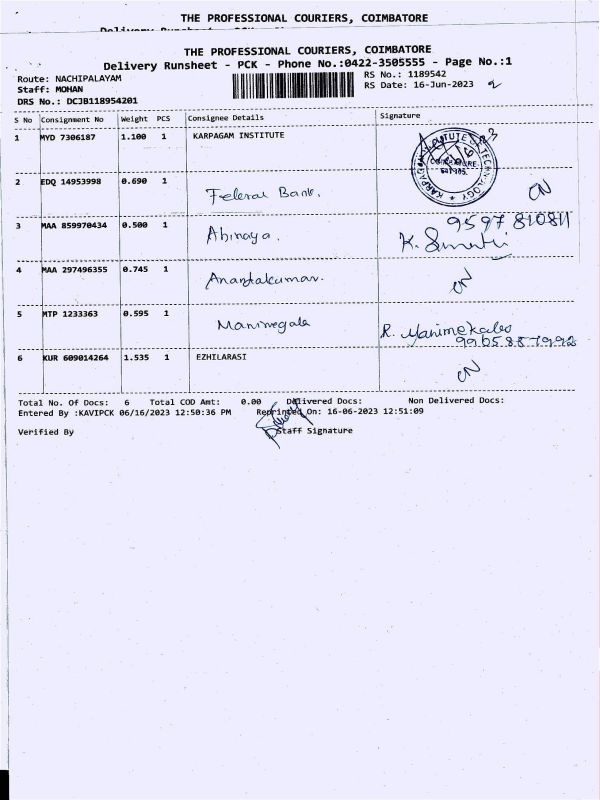 THE PROFESSIONAL COURIERS, COIMBATORE
THE PROFESSIONAL COURIERS, COIMBATORE
Delivery Runsheet - PCK - Phone No.:0422-3505555 - Page No.:1
Route: NACHIPALAYAM
RS No.: 1189542
Staff: MOHAN
RS Date: 16-Jun-2023
DRS No.: DCJB118954201
S No Consignment No Weight PCS Consignee Details Signature
1 MYD 7306187 1.100 1 KARPAGAM INSTITUTE
KARPAGAM INSTITUTE OF TECHNOLOGY
COIMBATORE
641 105.
2 EDQ 14953998 0.690 1
Federal Bank.
CN
3 MAA 859970434 0.500 1 Abinaya. 9597 810811
4 MAA 297496355 0.745 1
Anantakumar.
CN
5 MTP 1233363 0.595 1
Manimegala R. Manimekalas
6 KUR 609014264 1.535 1 EZHILARASI
CN
Total No. Of Docs: 6 Total COD Amt: 0.00 Delivered Docs: Non Delivered Docs:
Entered By :KAVIPCK 06/16/2023 12:50:36 PM Reprinted On: 16-06-2023 12:51:09
Verified By Staff Signature